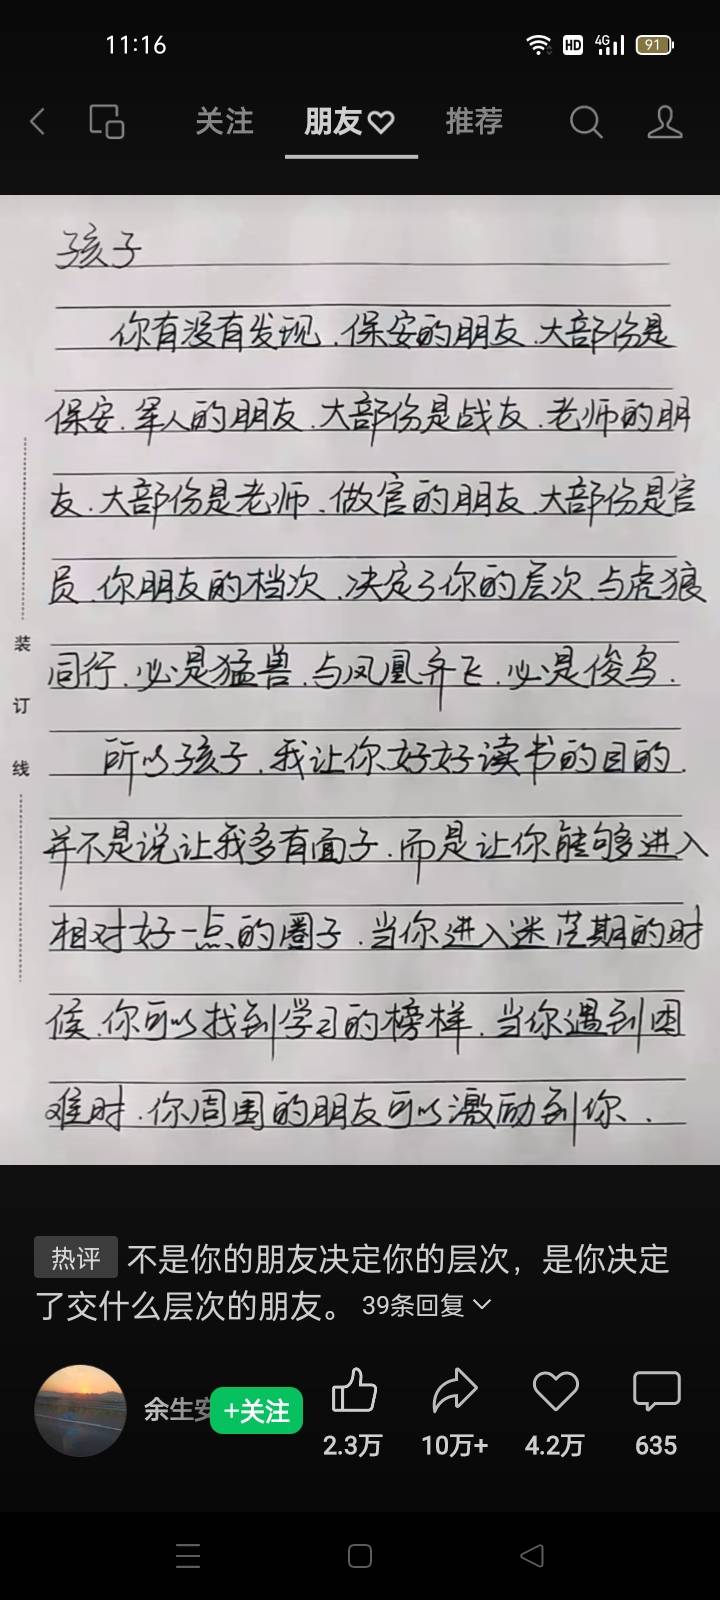 11:16
HD 4G 91
关注 朋友♡ 推荐
孩子
你有没有发现.保安的朋友.大部份是
保安.军人的朋友.大部份是战友.老师的朋
友.大部份是老师.做官的朋友.大部份是官
员.你朋友的档次.决定了你的层次.与虎狼
同行.必是猛兽.与凤凰齐飞.必是俊鸟.
所以孩子.我让你好好读书的目的.
并不是说让我多有面子.而是让你能够进入
相对好一点的圈子.当你进入迷茫期的时
候.你可以找到学习的榜样.当你遇到困
难时.你周围的朋友可以激励到你.
装
订
线
热评 不是你的朋友决定你的层次，是你决定
了交什么层次的朋友。 39条回复
余生安 +关注
2.3万 10万+ 4.2万 635